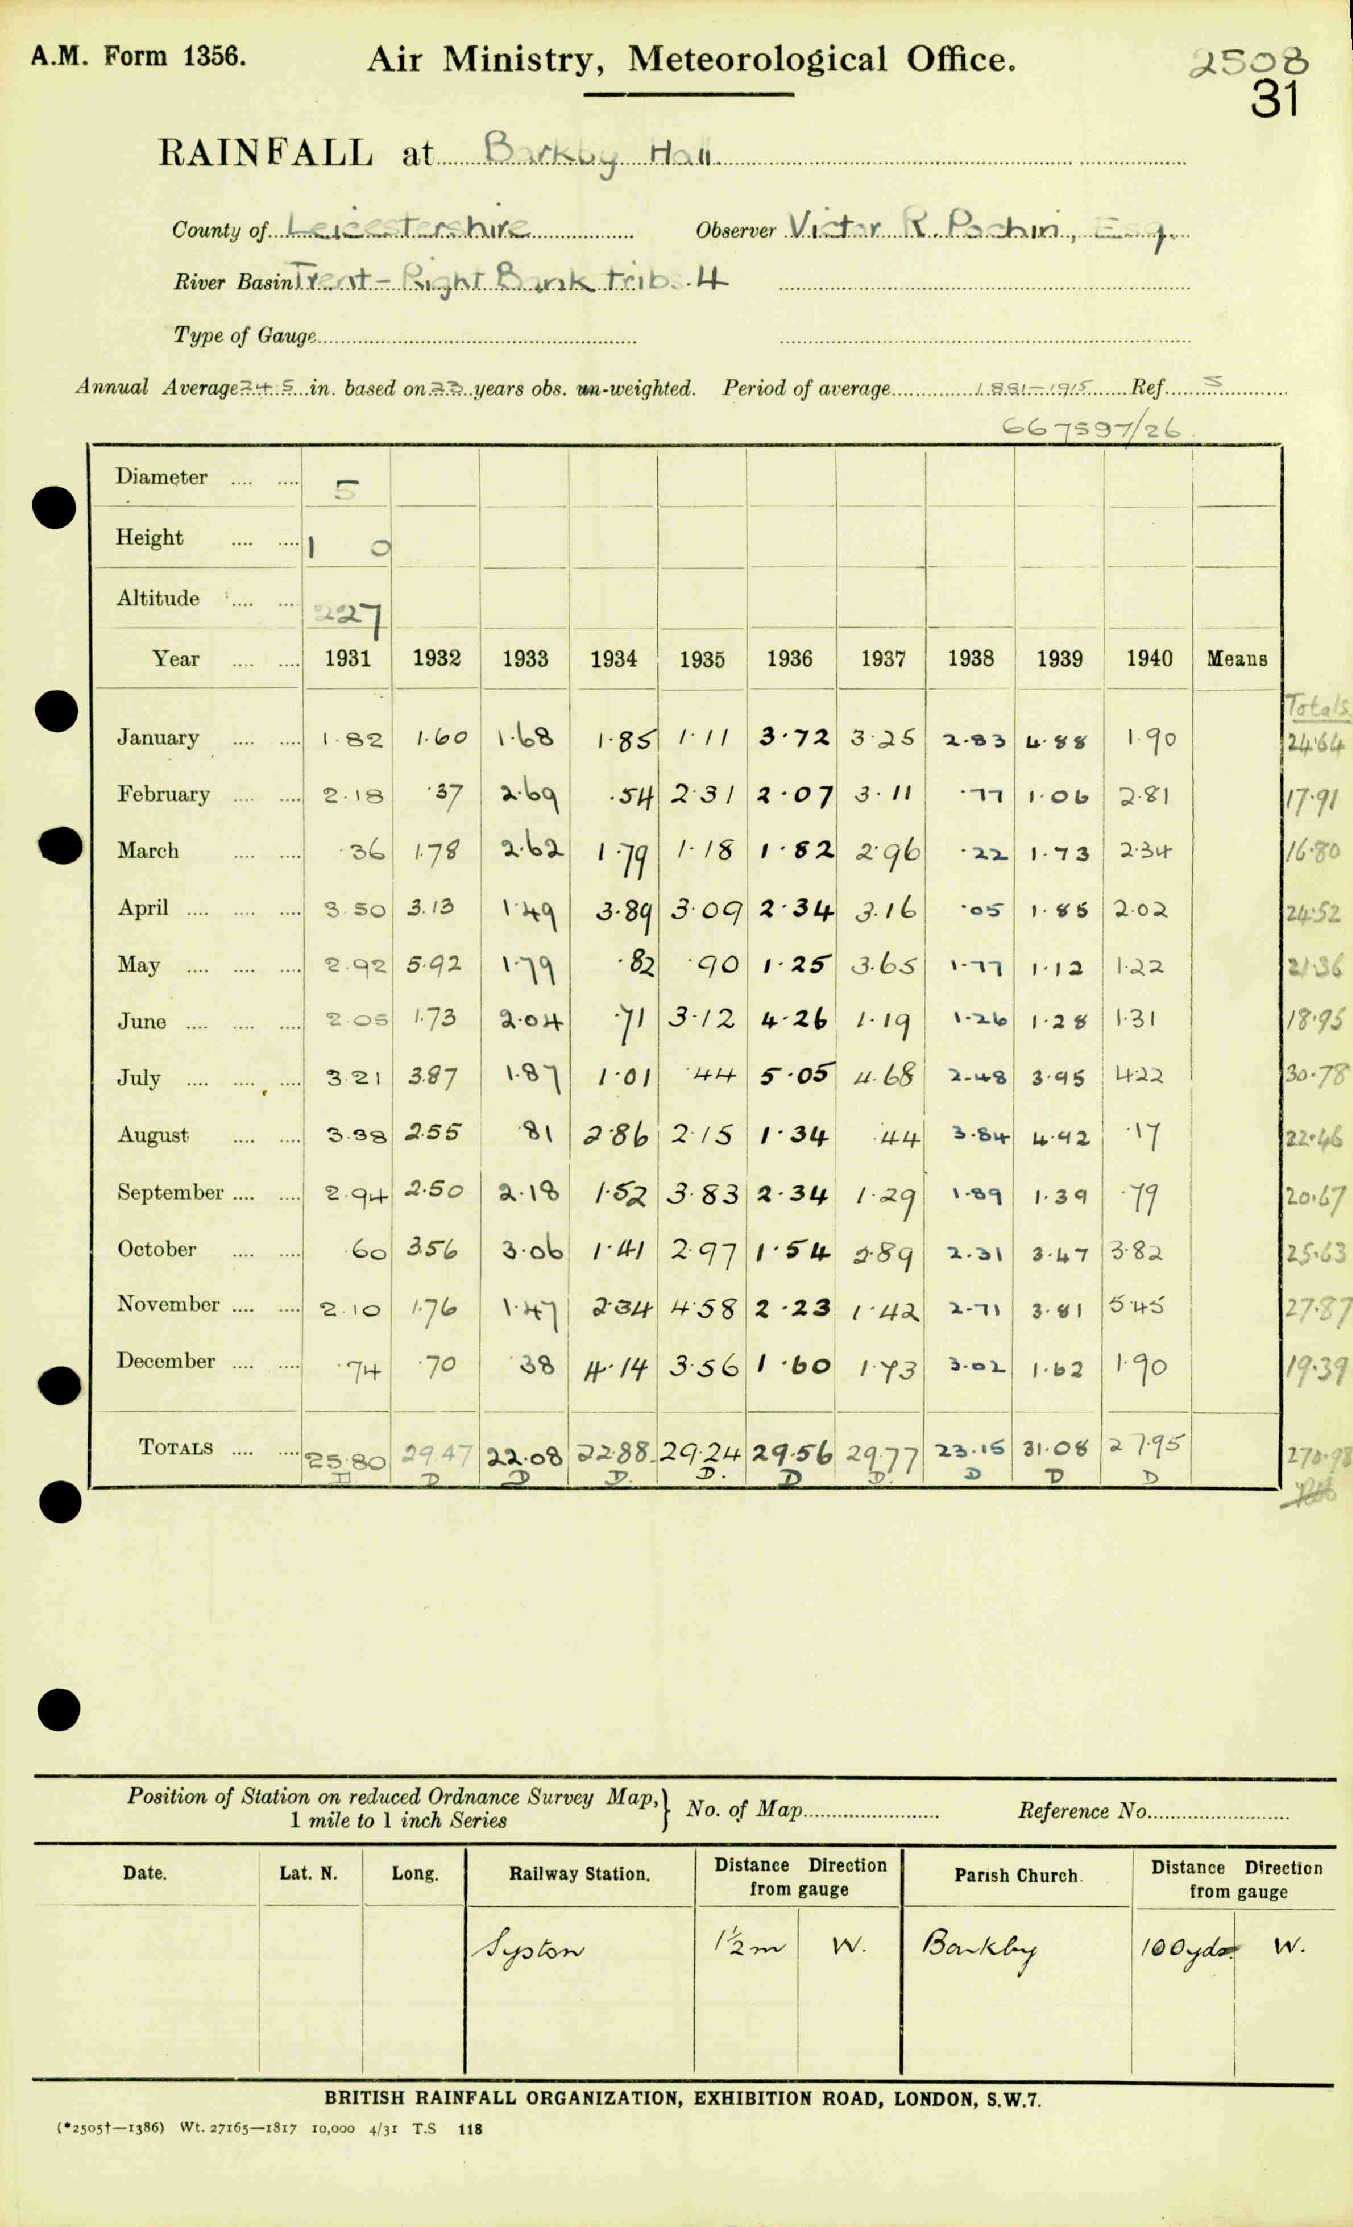 A.M. Form 1356.
Air Ministry, Meteorological Office.
2508
31
RAINFALL at Barkby Hall
County of Leicestershire Observer Victor R. Pochin, Esq.
River Basin Trent – Right Bank tribs. 4
Type of Gauge
Annual Average 24.5 in. based on 23 years obs. un-weighted. Period of average 1881–1915 Ref. 5
667597/26
Diameter .... .... 5
Height .... .... 1 0
Altitude .... .... 227
Year .... .... 1931 1932 1933 1934 1935 1936 1937 1938 1939 1940 Means
Totals
January .... .... 1.82 1.60 1.68 1.85 1.11 3.72 3.25 2.83 4.88 1.90 24.64
February .... .... 2.18 .37 2.69 .54 2.31 2.07 3.11 .77 1.06 2.81 17.91
March .... .... .36 1.78 2.62 1.79 1.18 1.82 2.96 .22 1.73 2.34 16.80
April .... .... .... 3.50 3.13 1.49 3.89 3.09 2.34 3.16 .05 1.85 2.02 24.52
May .... .... .... 2.92 5.92 1.79 .82 .90 1.25 3.65 1.77 1.12 1.22 21.36
June .... .... .... 2.05 1.73 2.04 .71 3.12 4.26 1.19 1.26 1.28 1.31 18.95
July .... .... .... 3.21 3.87 1.87 1.01 .44 5.05 4.68 2.48 3.95 4.22 30.78
August .... .... 3.38 2.55 .81 2.86 2.15 1.34 .44 3.84 4.92 .17 22.46
September .... .... 2.94 2.50 2.18 1.52 3.83 2.34 1.29 1.89 1.39 .79 20.67
October .... .... .60 3.56 3.06 1.41 2.97 1.54 2.89 2.31 3.47 3.82 25.63
November .... .... 2.10 1.76 1.47 2.34 4.58 2.23 1.42 2.71 3.81 5.45 27.87
December .... .... .74 .70 .38 4.14 3.56 1.60 1.73 3.02 1.62 1.90 19.39
TOTALS .... .... 25.80 29.47 22.08 22.88 29.24 29.56 29.77 23.15 31.08 27.95 270.98
D D D D. D. D D. D D D
Position of Station on reduced Ordnance Survey Map,} No. of Map Reference No.
1 mile to 1 inch Series
Date. Lat. N. Long. Railway Station. Distance Direction from gauge Parish Church. Distance Direction from gauge
Syston 1½m W. Barkby 100yds. W.
BRITISH RAINFALL ORGANIZATION, EXHIBITION ROAD, LONDON, S.W.7.
(*2505†—1386) Wt. 27165—1817 10,000 4/31 T.S 118